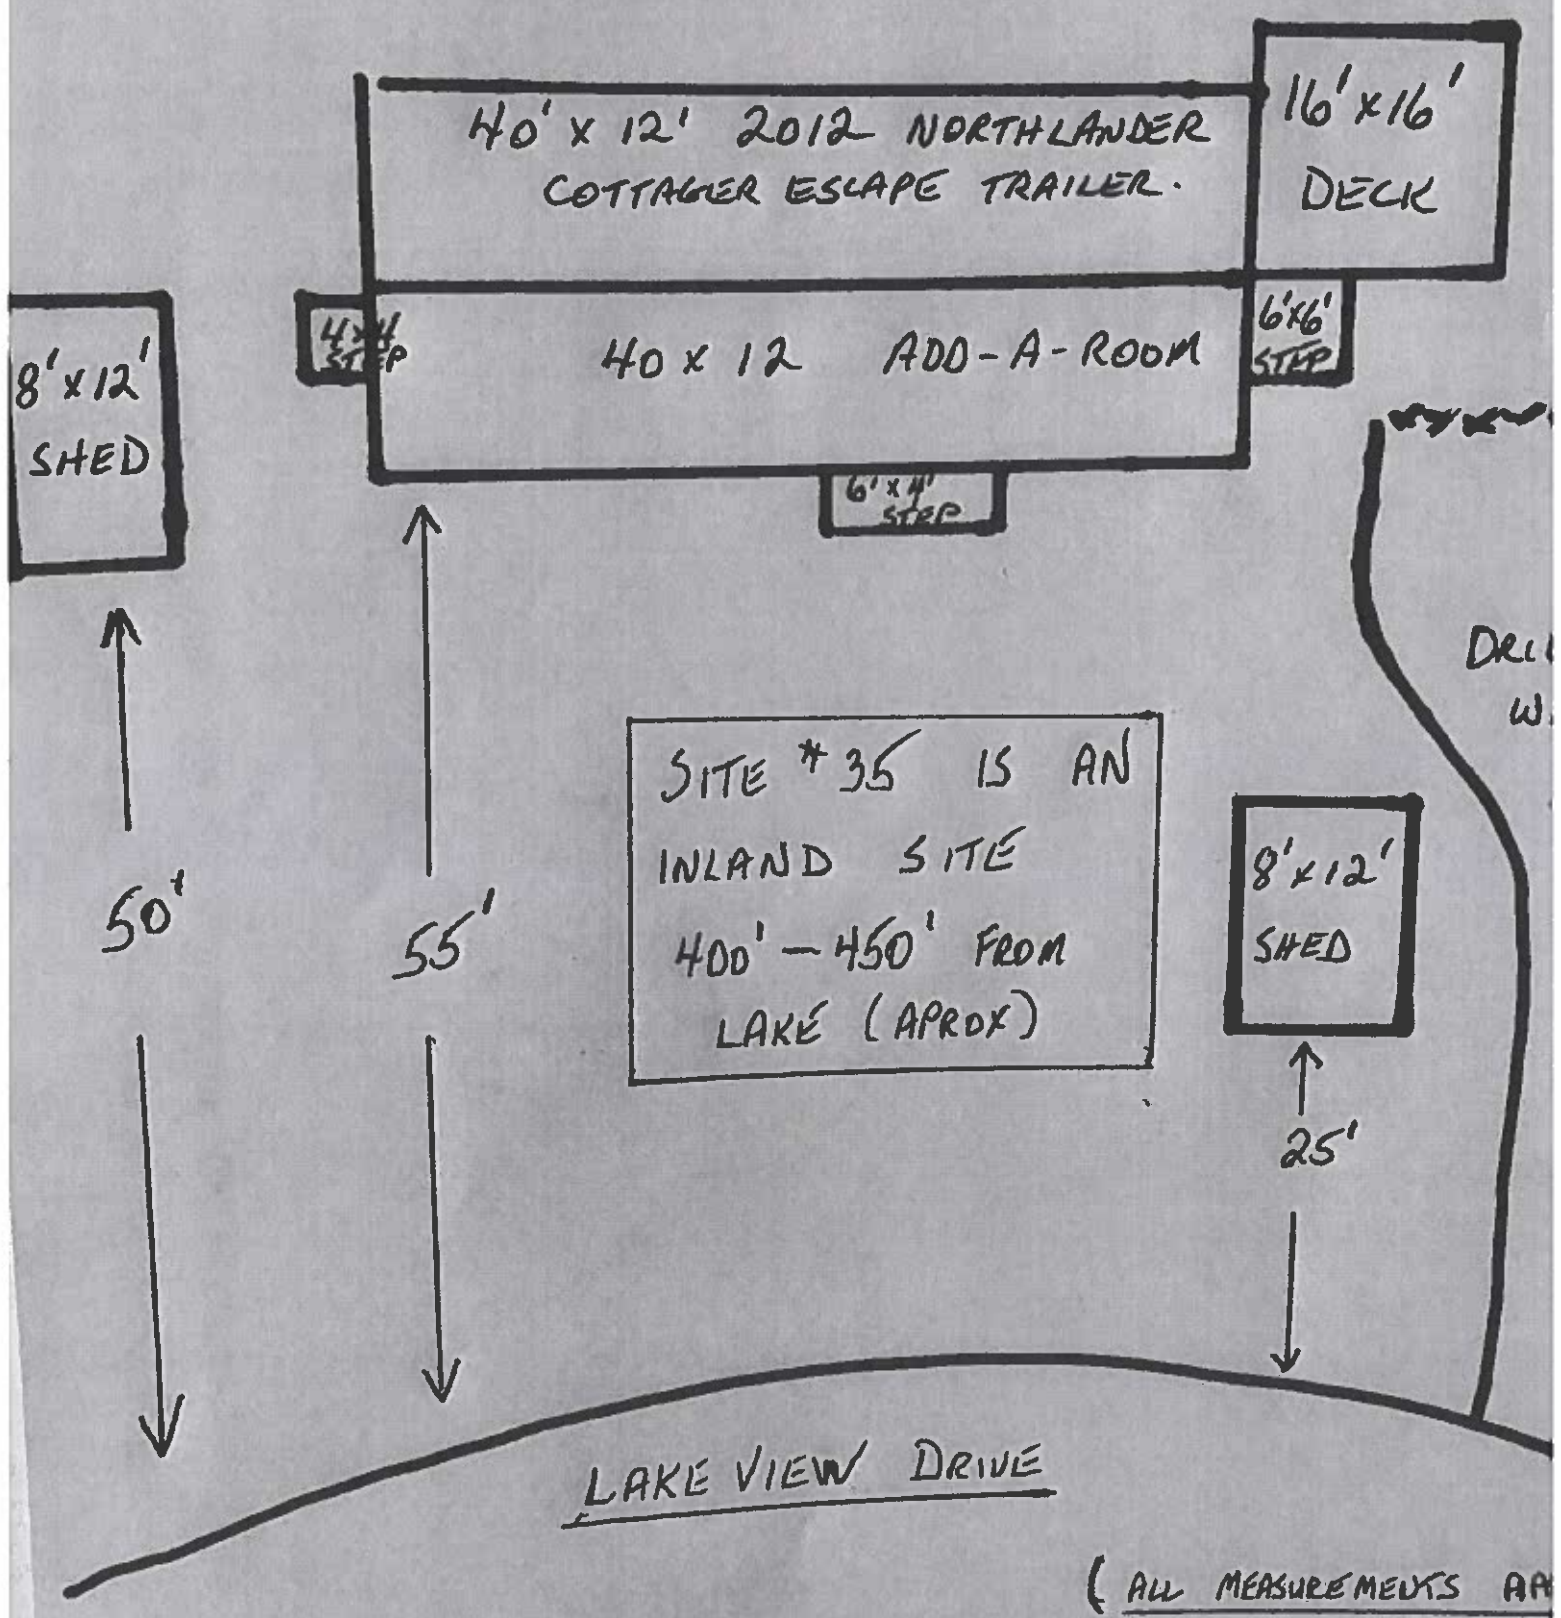 40' x 12' 2012 NORTHLANDER
COTTAGER ESCAPE TRAILER.
16' x 16'
DECK
8' x 12'
SHED
4x4
STEP
40 x 12 ADD-A-ROOM
6'x6'
STEP
6' x 4'
STEP
50'
55'
SITE #35 IS AN
INLAND SITE
400' - 450' FROM
LAKE (APROX)
8' x 12'
SHED
25'
LAKE VIEW DRIVE
( ALL MEASUREMENTS